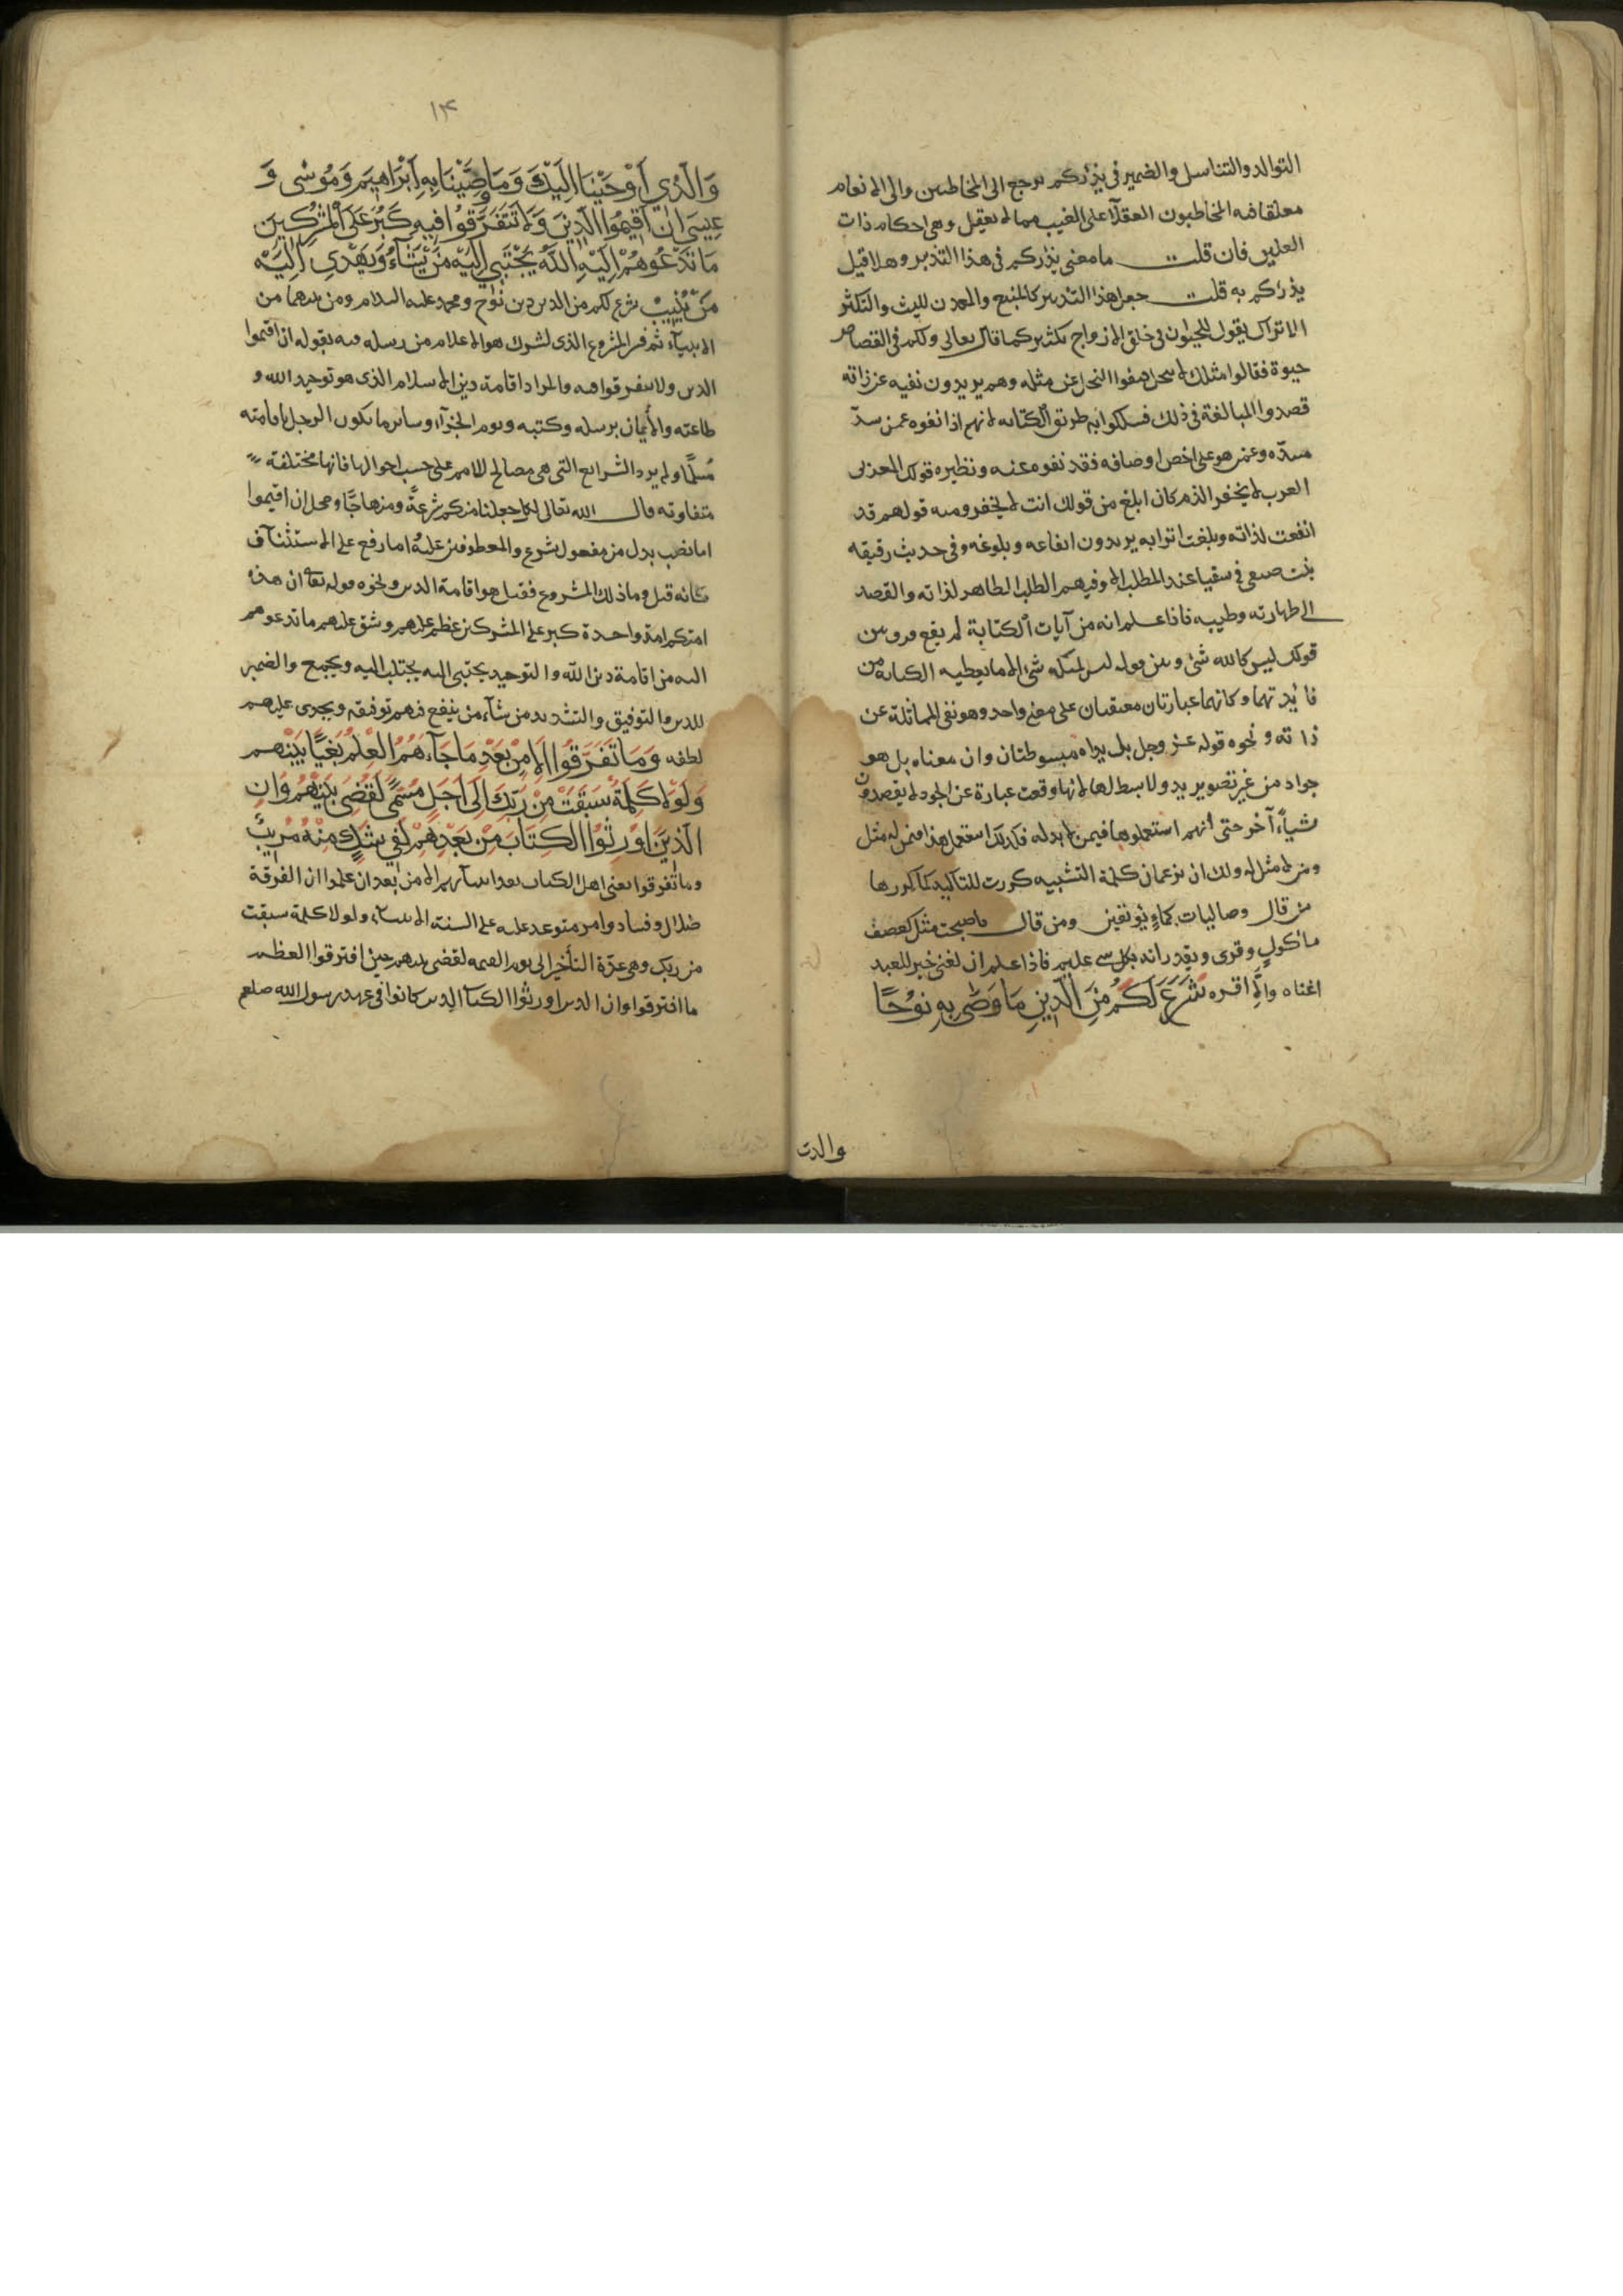 التوالد والتناسل والضمير فى يذرؤكم يرجع الى المخاطبين والى الانعام
مغلقا فيه المخاطبون العقلاء على الغيب مما لا يعقل وهى احكام ذات
العلتين فان قلت ما معنى يذرؤكم فى هذا التدبير وهلا قيل
يذرؤكم به قلت جعل هذا التدبير كالمنبع والمعدن للبث والتكثير
الا تراك يقول للحيوان فى خلق الازواج تكثير كما قال تعالى ولكم فى القصاص
حيوة فقالوا مثلك لا يبخل فنفوا البخل عن مثله وهم يريدون نفيه عن ذاته
قصدوا المبالغة فى ذلك فسلكوا به طريق الكتابه لانهم اذا نفوه عمن يسدّ
مسدّه وعمن هو على اخص اوصافه فقد نفوه عنه ونظيره قولك للعربى
العرب لا يخفر الذمم كان ابلغ من قولك انت لا يخفر ومنه قولهم قد
ايفعت لذاته وبلغت اترابه يريدون ايفاعه وبلوغه وفى حديث رقيقه
بنت صيفى فى سقيا عبد المطلب الا وفيهم الطلب الطاهر لذاته والقصد
الى طهارته وطيبه فاذا علم انه من آيات الكتابة لم يقع فرق بين
قولك ليس كالله شئ وبين قوله ليس كمثله شئ الا ما يعطيه الكنايه من
فائدتهما وكانهما عبارتان معتقبان على معنى واحد وهو نفى المماثلة عن
ذاته ونحوه قوله عز وجل بل يداه مبسوطتان وان معناه بل هو
جواد من غير تصوير يد ولا بسط لها لانها وقعت عبارة عن الجود لا يقصدون
شياء آخر حتى انهم استعملوها فيمن لا يد له فكذلك استعمل هذا فيمن له مثل
ومن لا مثل له ولك ان تزعم ان كلمة التشبيه كررت للتاكيد كما كررها
من قال وصاليات كماء يؤثفين ومن قال فاصبحت مثل كعصف
مأكول وقرى ويقدر انه بكل شئ عليم فاذا علم ان لغنى خير للعبد
اغناه والا افقره شَرَعَ لَكُمْ مِنَ الدِّينِ مَا وَصَّى بِهِ نُوحًا
والذى
١٣
وَالَّذِي أَوْحَيْنَا إِلَيْكَ وَمَا وَصَّيْنَا بِهِ إِبْرَاهِيمَ وَمُوسَى وَ
عِيسَى أَنْ أَقِيمُوا الدِّينَ وَلَا تَتَفَرَّقُوا فِيهِ كَبُرَ عَلَى الْمُشْرِكِينَ
مَا تَدْعُوهُمْ إِلَيْهِ اللَّهُ يَجْتَبِي إِلَيْهِ مَنْ يَشَاءُ وَيَهْدِي إِلَيْهِ
مَنْ يُنِيبُ شرع لكم من الدين دين نوح ومحمد عليه السلام ومن بينهما من
الانبياء ثم فسر المشروع الذى اشترك هو الاعلام من رسله فيه بقوله ان اقيموا
الدين ولا تتفرقوا فيه والمراد اقامة دين الاسلام الذى هو توحيد الله و
طاعته والايمان برسله وكتبه ويوم الجزآء وسائر ما يكون الرجل باقامته
مُسلمًا ولم يرد الشرايع التى هى مصالح للامم على حسب احوالها فانها مختلفة
متفاوته قال الله تعالى لكل جعلنا منكم شرعةً ومنهاجًا ومحل ان اقيموا
اما نصب بدل من مفعول شرع والمعطوفين عليه اما رفع على الاستئناف
كانه قيل وما ذلك المشروع فقيل هو اقامة الدين ونحوه قوله تعا ان هذه
امتكم امة واحدة كبر على المشركين عظم عليهم وشق عليهم ما تدعوهم
اليه من اقامة دين الله والتوحيد يجتبى اليه يجتلب اليه ويجمع والضمير
للدين والتوفيق والتشديد من شآء من ينفع فيهم توفيقه ويجرى عليهم
لطفه وَمَا تَفَرَّقُوا إِلَّا مِنْ بَعْدِ مَا جَآءَهُمُ الْعِلْمُ بَغْيًا بَيْنَهُمْ
وَلَوْلَا كَلِمَةٌ سَبَقَتْ مِنْ رَبِّكَ إِلَى أَجَلٍ مُسَمًّى لَقُضِيَ بَيْنَهُمْ وَإِنَّ
الَّذِينَ أُورِثُوا الْكِتَابَ مِنْ بَعْدِهِمْ لَفِي شَكٍّ مِنْهُ مُرِيبٍ
وما تفرقوا يعنى اهل الكتاب بعد انبيآئهم الا من بعد ان علموا ان الفرقة
ضلال وفساد وامر متوعد عليه على السنة الانبيآء ولولا كلمة سبقت
من ربك وهى عدّة التأخير الى يوم القيمه لقضى بينهم حين افترقوا العظم
ما افترقوا وان الذين اورثوا الكتاب الذين كانوا فى عهد رسول الله صلعم